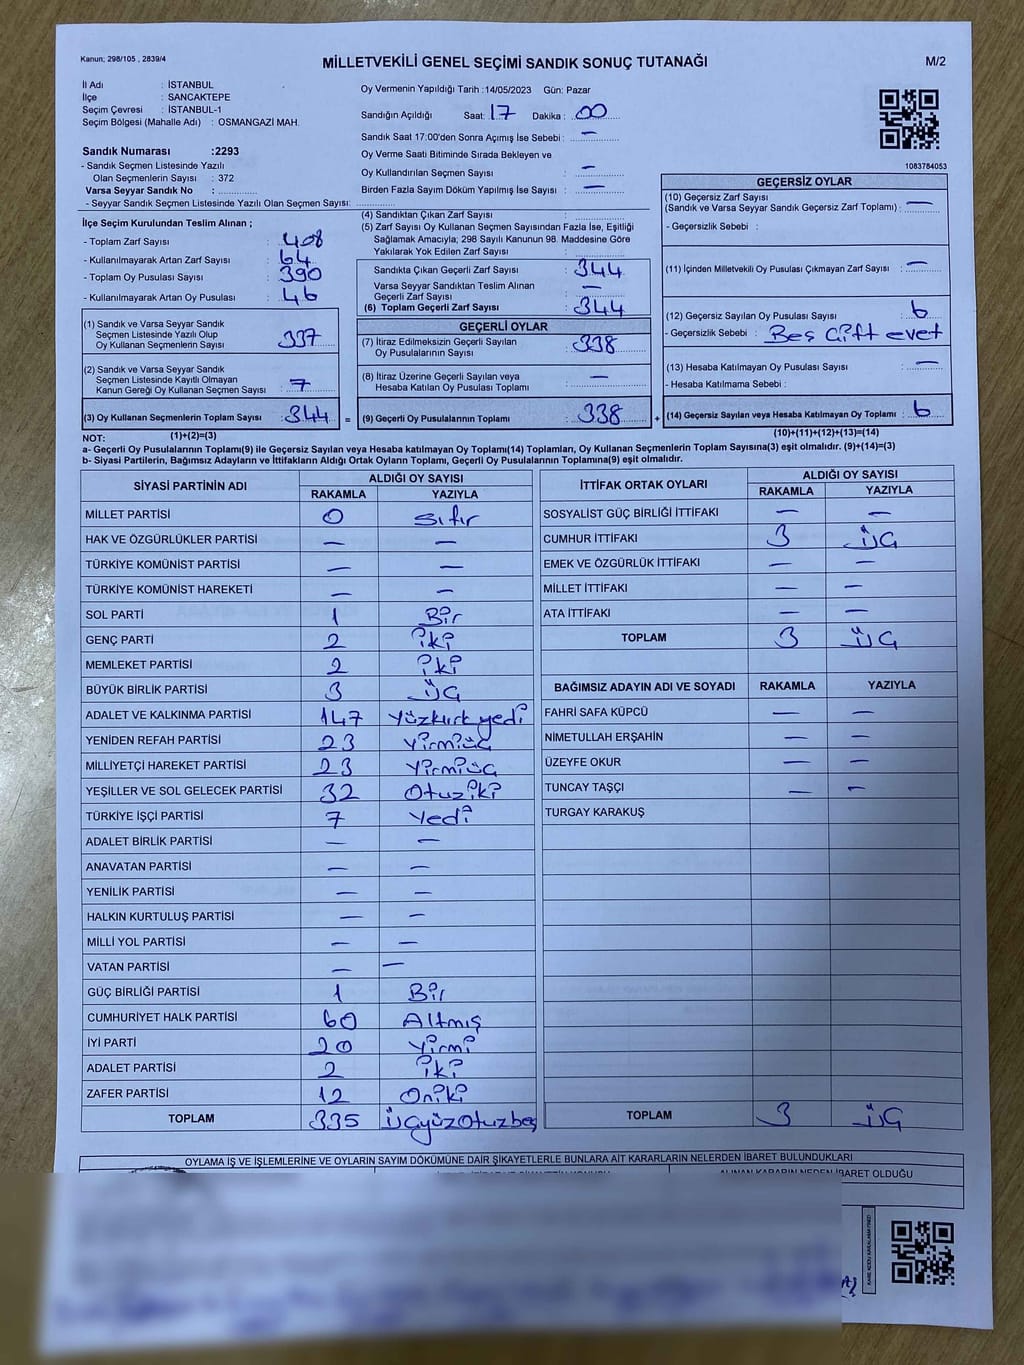 Kanun; 298/105 , 2839/4
MİLLETVEKİLİ GENEL SEÇİMİ SANDIK SONUÇ TUTANAĞI
M/2
İl Adı : İSTANBUL
İlçe : SANCAKTEPE
Seçim Çevresi : İSTANBUL-1
Seçim Bölgesi (Mahalle Adı) : OSMANGAZİ MAH.
Sandık Numarası :2293
- Sandık Seçmen Listesinde Yazılı
Olan Seçmenlerin Sayısı : 372
Varsa Seyyar Sandık No :
- Seyyar Sandık Seçmen Listesinde Yazılı Olan Seçmen Sayısı:
Oy Vermenin Yapıldığı Tarih :14/05/2023 Gün: Pazar
Sandığın Açıldığı Saat: 17 Dakika : 00
Sandık Saat 17:00'den Sonra Açımış İse Sebebi : —
Oy Verme Saati Bitiminde Sırada Bekleyen ve
Oy Kullandırılan Seçmen Sayısı : —
Birden Fazla Sayım Döküm Yapılmış İse Sayısı : —
1083784053
İlçe Seçim Kurulundan Teslim Alınan ;
- Toplam Zarf Sayısı : 408
- Kullanılmayarak Artan Zarf Sayısı : 64
- Toplam Oy Pusulası Sayısı : 390
- Kullanılmayarak Artan Oy Pusulası : 46
(1) Sandık ve Varsa Seyyar Sandık
Seçmen Listesinde Yazılı Olup
Oy Kullanan Seçmenlerin Sayısı : 337
(2) Sandık ve Varsa Seyyar Sandık
Seçmen Listesinde Kayıtlı Olmayan
Kanun Gereği Oy Kullanan Seçmen Sayısı : 7
(3) Oy Kullanan Seçmenlerin Toplam Sayısı : 344 =
(4) Sandıktan Çıkan Zarf Sayısı :
(5) Zarf Sayısı Oy Kullanan Seçmen Sayısından Fazla İse, Eşitliği
Sağlamak Amacıyla; 298 Sayılı Kanunun 98. Maddesine Göre
Yakılarak Yok Edilen Zarf Sayısı :
Sandıkta Çıkan Geçerli Zarf Sayısı : 344
Varsa Seyyar Sandıktan Teslim Alınan
Geçerli Zarf Sayısı : —
(6) Toplam Geçerli Zarf Sayısı : 344
GEÇERLİ OYLAR
(7) İtiraz Edilmeksizin Geçerli Sayılan
Oy Pusulalarının Sayısı : 338
(8) İtiraz Üzerine Geçerli Sayılan veya
Hesaba Katılan Oy Pusulası Toplamı : —
(9) Geçerli Oy Pusulalarının Toplamı : 338 +
GEÇERSİZ OYLAR
(10) Geçersiz Zarf Sayısı
(Sandık ve Varsa Seyyar Sandık Geçersiz Zarf Toplamı) : —
- Geçersizlik Sebebi :
(11) İçinden Milletvekili Oy Pusulası Çıkmayan Zarf Sayısı : —
(12) Geçersiz Sayılan Oy Pusulası Sayısı : 6
- Geçersizlik Sebebi : Beş Çift evet
(13) Hesaba Katılmayan Oy Pusulası Sayısı : —
- Hesaba Katılmama Sebebi :
(14) Geçersiz Sayılan veya Hesaba Katılmayan Oy Toplamı : 6
NOT: (1)+(2)=(3) (10)+(11)+(12)+(13)=(14)
a- Geçerli Oy Pusulalarının Toplamı(9) ile Geçersiz Sayılan veya Hesaba katılmayan Oy Toplamı(14) Toplamları, Oy Kullanan Seçmenlerin Toplam Sayısına(3) eşit olmalıdır. (9)+(14)=(3)
b- Siyasi Partilerin, Bağımsız Adayların ve İttifakların Aldığı Ortak Oyların Toplamı, Geçerli Oy Pusulalarının Toplamına(9) eşit olmalıdır.
SİYASİ PARTİNİN ADI ALDIĞI OY SAYISI
RAKAMLA YAZIYLA
MİLLET PARTİSİ 0 Sıfır
HAK VE ÖZGÜRLÜKLER PARTİSİ — —
TÜRKİYE KOMÜNİST PARTİSİ — —
TÜRKİYE KOMÜNİST HAREKETİ — —
SOL PARTİ 1 Bir
GENÇ PARTİ 2 iki
MEMLEKET PARTİSİ 2 iki
BÜYÜK BİRLİK PARTİSİ 3 üç
ADALET VE KALKINMA PARTİSİ 147 Yüzkırkyedi
YENİDEN REFAH PARTİSİ 23 Yirmiüç
MİLLİYETÇİ HAREKET PARTİSİ 23 Yirmiüç
YEŞİLLER VE SOL GELECEK PARTİSİ 32 Otuziki
TÜRKİYE İŞÇİ PARTİSİ 7 Yedi
ADALET BİRLİK PARTİSİ — —
ANAVATAN PARTİSİ — —
YENİLİK PARTİSİ — —
HALKIN KURTULUŞ PARTİSİ — —
MİLLİ YOL PARTİSİ — —
VATAN PARTİSİ — —
GÜÇ BİRLİĞİ PARTİSİ 1 Bir
CUMHURİYET HALK PARTİSİ 60 Altmış
İYİ PARTİ 20 Yirmi
ADALET PARTİSİ 2 iki
ZAFER PARTİSİ 12 Oniki
TOPLAM 335 Üçyüzotuzbeş
İTTİFAK ORTAK OYLARI ALDIĞI OY SAYISI
RAKAMLA YAZIYLA
SOSYALİST GÜÇ BİRLİĞİ İTTİFAKI — —
CUMHUR İTTİFAKI 3 üç
EMEK VE ÖZGÜRLÜK İTTİFAKI — —
MİLLET İTTİFAKI — —
ATA İTTİFAKI — —
TOPLAM 3 üç
BAĞIMSIZ ADAYIN ADI VE SOYADI RAKAMLA YAZIYLA
FAHRİ SAFA KÜPCÜ — —
NİMETULLAH ERŞAHİN — —
ÜZEYFE OKUR — —
TUNCAY TAŞÇI — —
TURGAY KARAKUŞ
TOPLAM 3 üç
OYLAMA İŞ VE İŞLEMLERİNE VE OYLARIN SAYIM DÖKÜMÜNE DAİR ŞİKAYETLERLE BUNLARA AİT KARARLARIN NELERDEN İBARET BULUNDUKLARI
ALINAN KARARIN NEDEN İBARET OLDUĞU